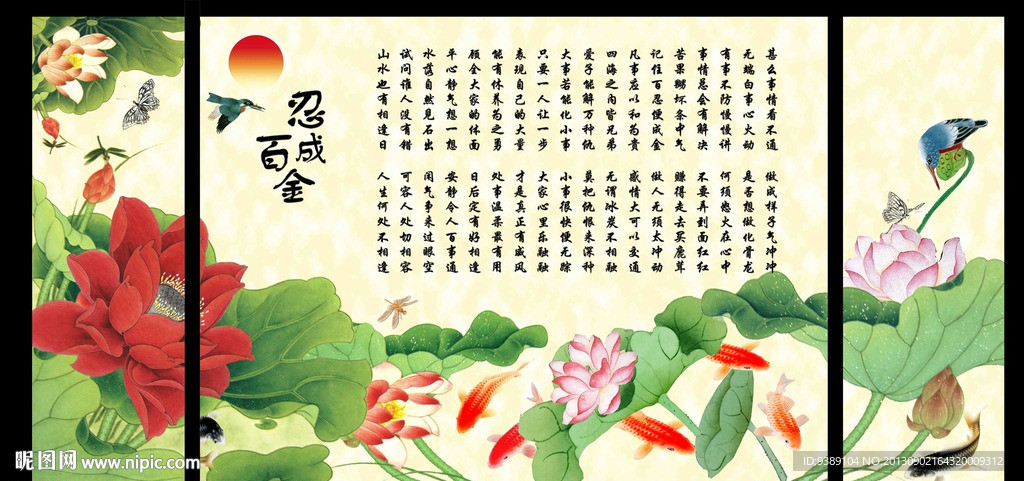 百忍成金
甚么事情看不通 做成样子气冲冲
无端白事心火动 是否想做化骨龙
有事不防慢慢讲 何须憋火在心中
事情总会有解决 不要弄到面红红
苦果嬲坏条中气 赚得走去买鹿茸
记住百忍便成金 做人无须太冲动
凡事应以和为贵 感情大可以交通
四海之内皆兄弟 无谓冰炭不相融
爱子能解万种仇 莫把仇恨来深种
大事若能化小事 小事很快便无踪
只要一人让一步 大家心里乐融融
表现自己的大量 才是真正有威风
能有休养为之勇 处事温柔最有用
顾全大家的体面 日后定有好相逢
平心静气想一想 安静令人百事通
水落自然见石出 闲气事来过眼空
试问谁人没有错 可容人处切相容
山水也有相逢日 人生何处不相逢
昵图网 www.nipic.com
ID:9389104 NO:20130902164320009312